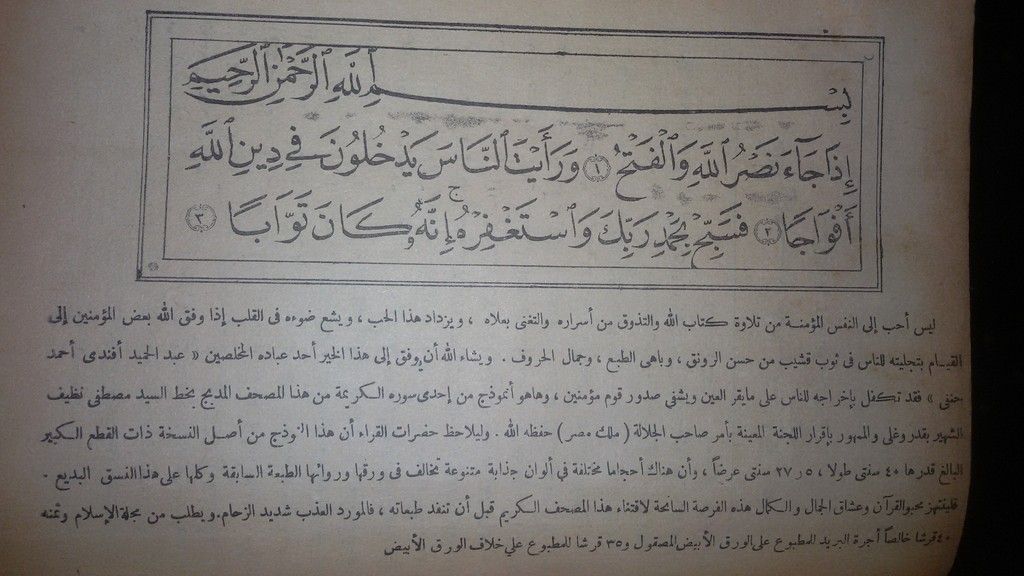 بِسْمِ ٱللَّهِ ٱلرَّحْمَٰنِ ٱلرَّحِيمِ
إِذَا جَآءَ نَصْرُ ٱللَّهِ وَٱلْفَتْحُ ١ وَرَأَيْتَ ٱلنَّاسَ يَدْخُلُونَ فِى دِينِ ٱللَّهِ
أَفْوَاجًا ٢ فَسَبِّحْ بِحَمْدِ رَبِّكَ وَٱسْتَغْفِرْهُ ج إِنَّهُۥ كَانَ تَوَّابًا ٣
ليس أحب إلى النفس المؤمنة من تلاوة كتاب الله والتذوق من أسراره والتغنى بعلاه ، ويزداد هذا الحب ، ويشع ضوءه فى القلب إذا وفق الله بعض المؤمنين إلى
القيام بتجليته للناس فى ثوب قشيب من حسن الرونق ، وباهى الطبع ، وجمال الحروف . ويشاء الله أن يوفق إلى هذا الخير أحد عباده المخلصين « عبد الحميد أفندى أحمد
حنفى » فقد تكفل بإخراجه للناس على مايقر العين ويشفي صدور قوم مؤمنين ، وهاهو أنموذج من إحدى سوره الكريمة من هذا المصحف المدبج بخط السيد مصطفى نظيف
الشهير بقدر وغلى والممهور بإقرار اللجنة المعينة بأمر صاحب الجلالة ( ملك مصر ) حفظه الله . وليلاحظ حضرات القراء أن هذا النموذج من أصل النسخة ذات القطع الكبير
البالغ قدرها ٤٠ سنتى طولا ، ٢٧٫٥ سنتى عرضاً ، وأن هناك أحجاما مختلفة فى ألوان جذابة متنوعة تخالف فى ورقها وروائها الطبعة السابقة وكلها على هذا النسق البديع .
فلينتهز محبو القرآن وعشاق الجمال والكمال هذه الفرصة السانحة لاقتناء هذا المصحف الكريم قبل أن تنفد طبعاته ، فالمورد العذب شديد الزحام. ويطلب من مجلة الإسلام وثمنه
٤٠ قرشا خالصاً أجرة البريد للمطبوع على الورق الأبيض المصقول و٣٥ قرشا للمطبوع علي خلاف الورق الأبيض